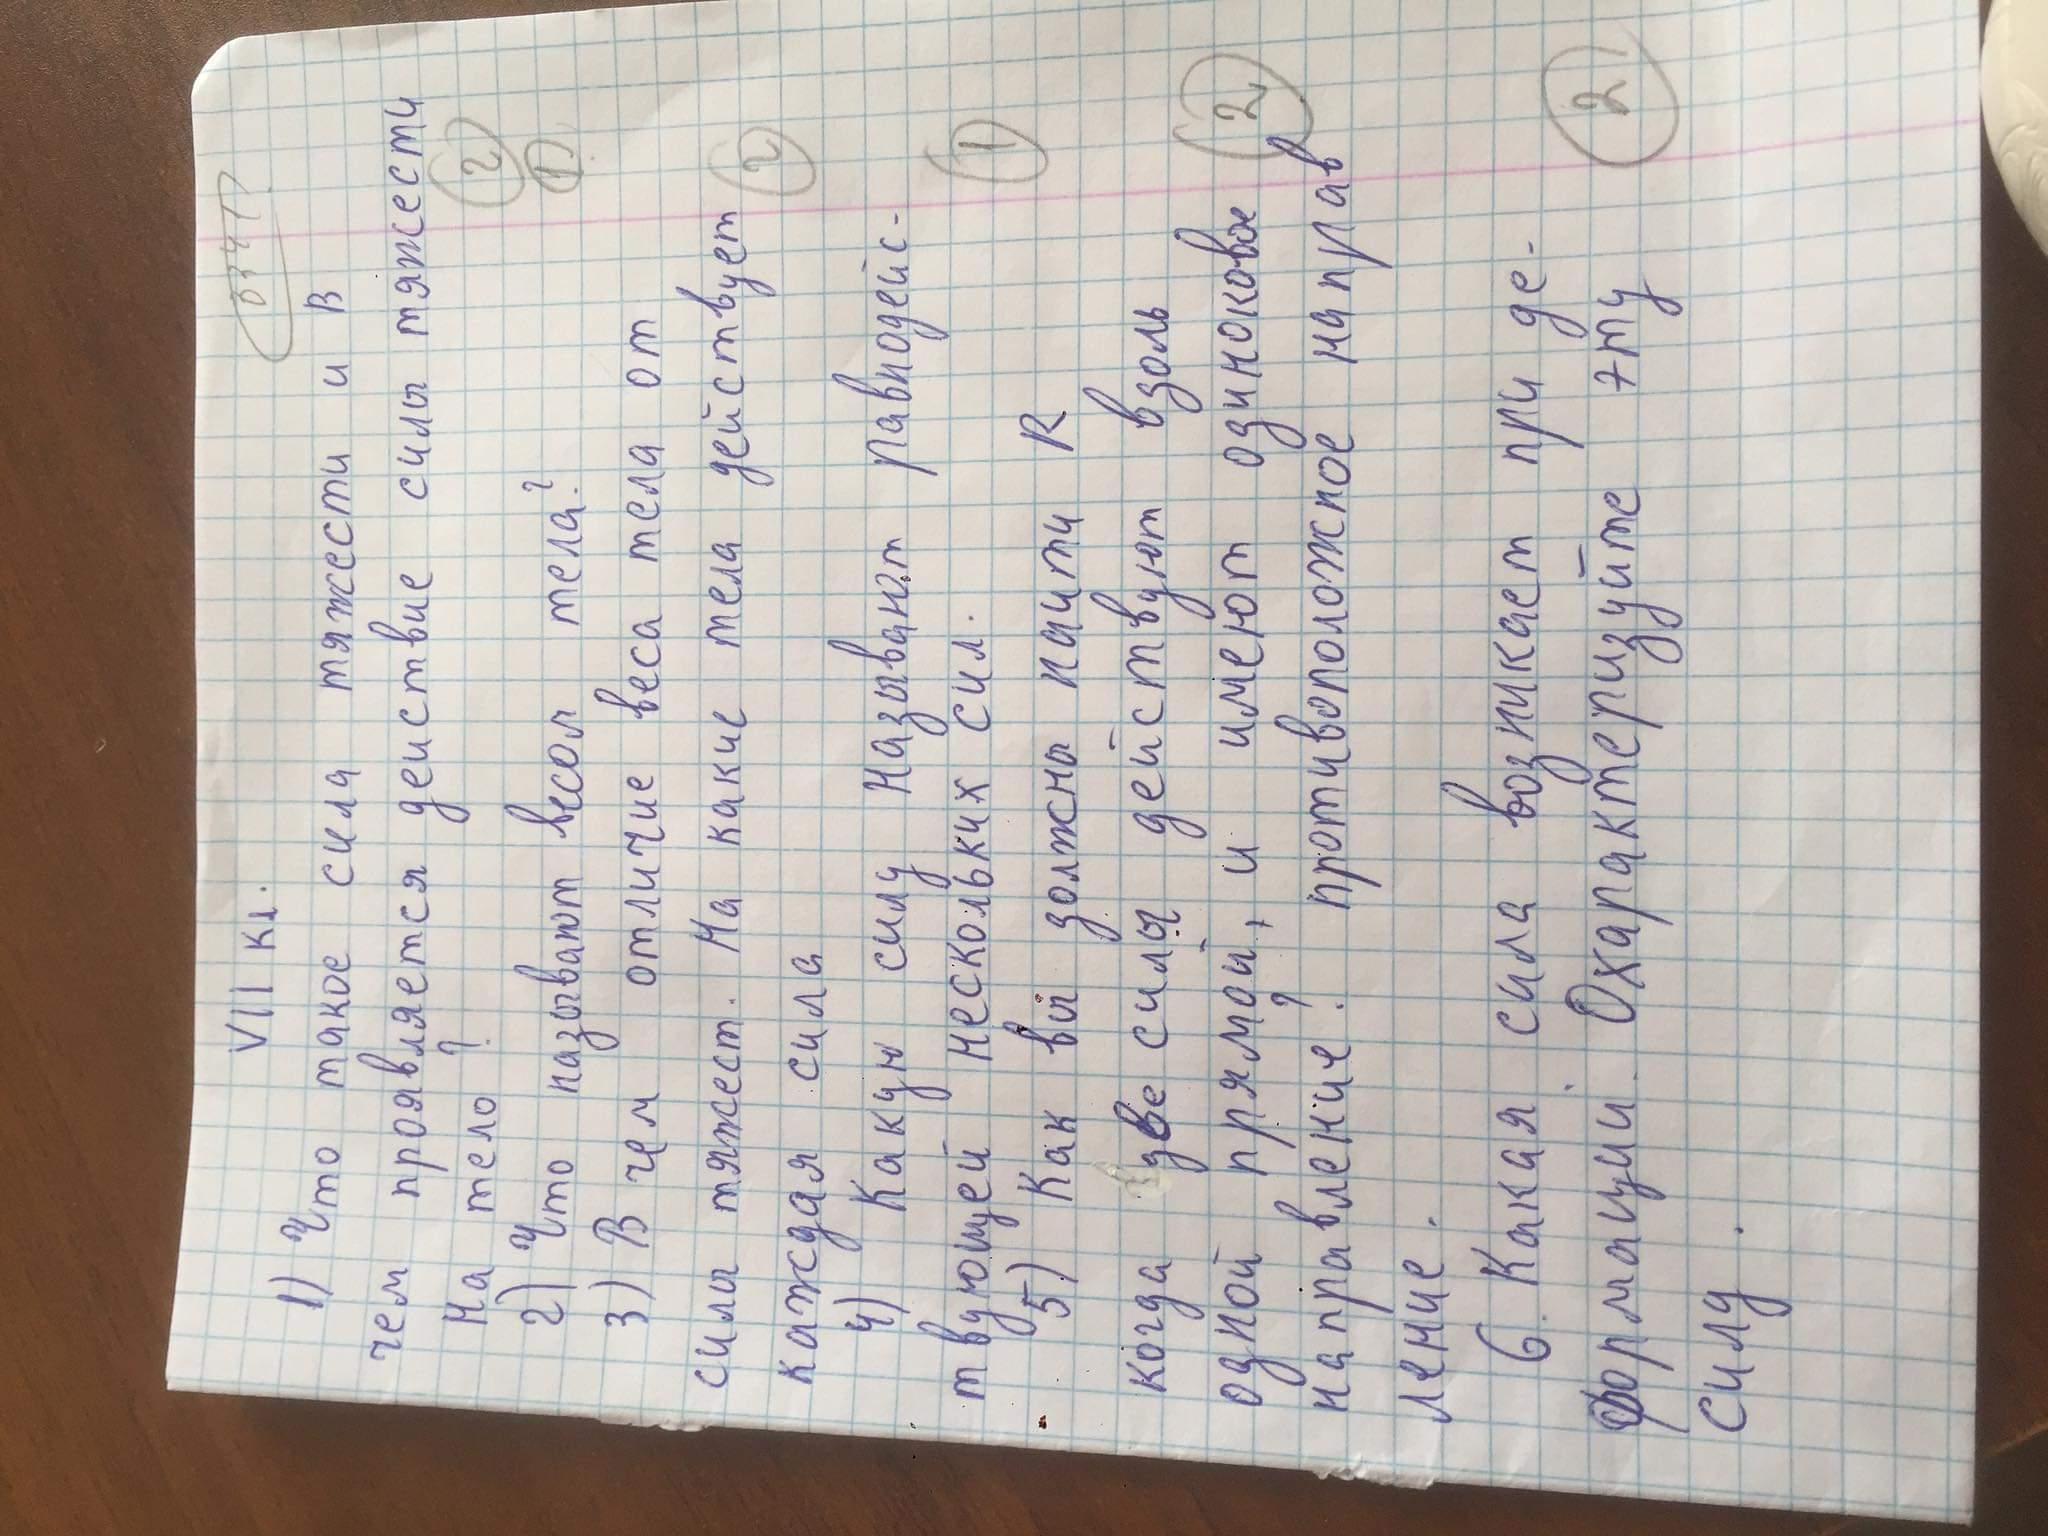 VII кл.
1) Что такое сила тяжести и в
чем проявляется действие силы тяжести
на тело?
2
2) Что называют весом тела?
1
3) В чем отличие веса тела от
силы тяжест. На какие тела действует
2
каждая сила
4) Какую силу называют равнодейс-
твующей нескольких сил.
1
5) Как вы должны найти R
когда две силы действуют вдоль
одной прямой, и имеют одинаковое
2
направление? противоположное направ
ление.
6. Какая сила возникает при де-
формации. Охарактеризуйте эту
2
силу.